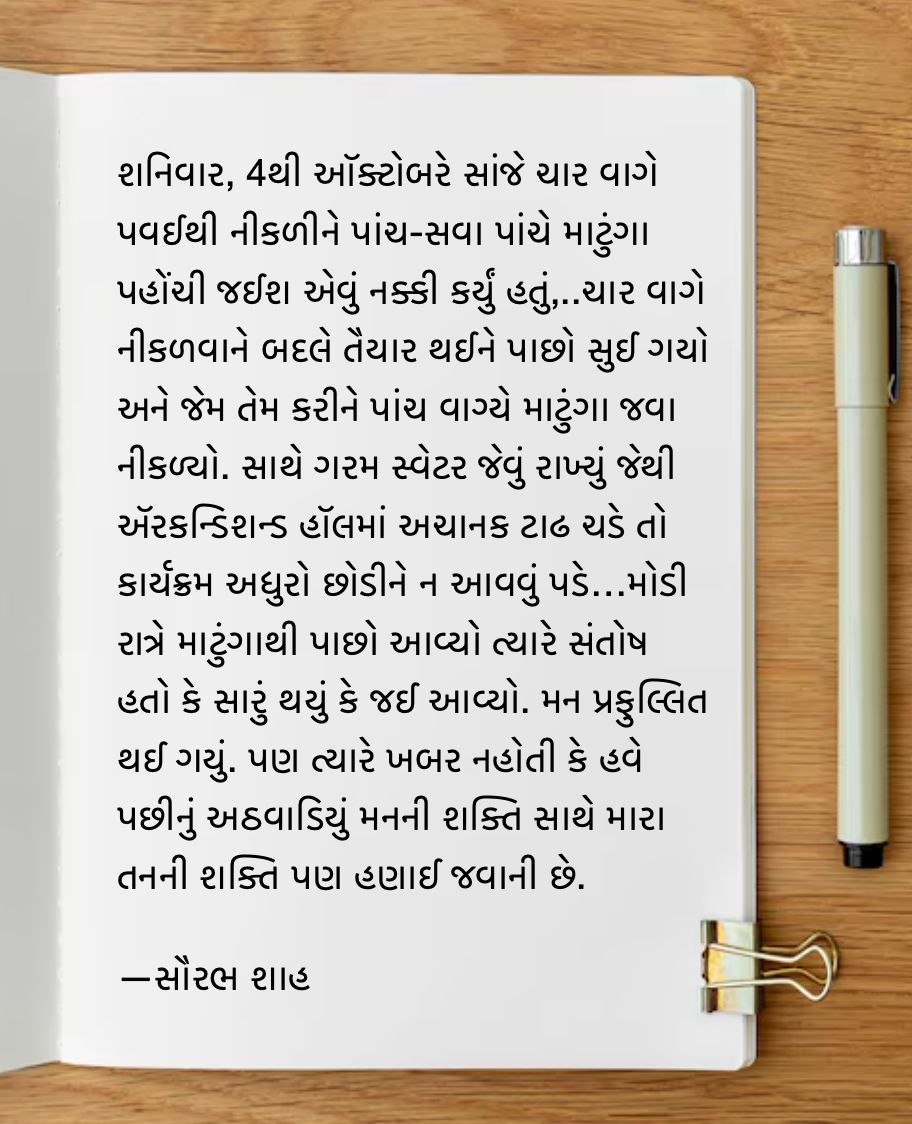 શનિવાર, 4થી ઑક્ટોબરે સાંજે ચાર વાગે
પવઈથી નીકળીને પાંચ-સવા પાંચે માટુંગા
પહોંચી જઈશ એવું નક્કી કર્યું હતું,..ચાર વાગે
નીકળવાને બદલે તૈયાર થઈને પાછો સુઈ ગયો
અને જેમ તેમ કરીને પાંચ વાગ્યે માટુંગા જવા
નીકળ્યો. સાથે ગરમ સ્વેટર જેવું રાખ્યું જેથી
ઍરકન્ડિશન્ડ હૉલમાં અચાનક ટાઢ ચડે તો
કાર્યક્રમ અધુરો છોડીને ન આવવું પડે...મોડી
રાત્રે માટુંગાથી પાછો આવ્યો ત્યારે સંતોષ
હતો કે સારું થયું કે જઈ આવ્યો. મન પ્રફુલ્લિત
થઈ ગયું. પણ ત્યારે ખબર નહોતી કે હવે
પછીનું અઠવાડિયું મનની શક્તિ સાથે મારા
તનની શક્તિ પણ હણાઈ જવાની છે.
—સૌરભ શાહ